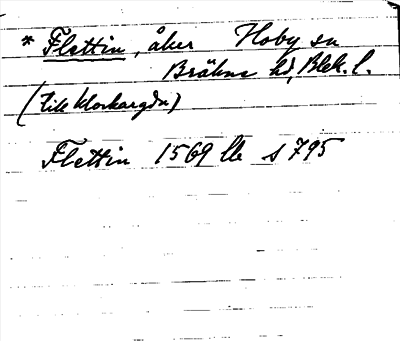 * Flettin, åker Hoby sn
Bräkne hd, Blek. l.
(till klockargdn)
Flettin 1569 lb s 795